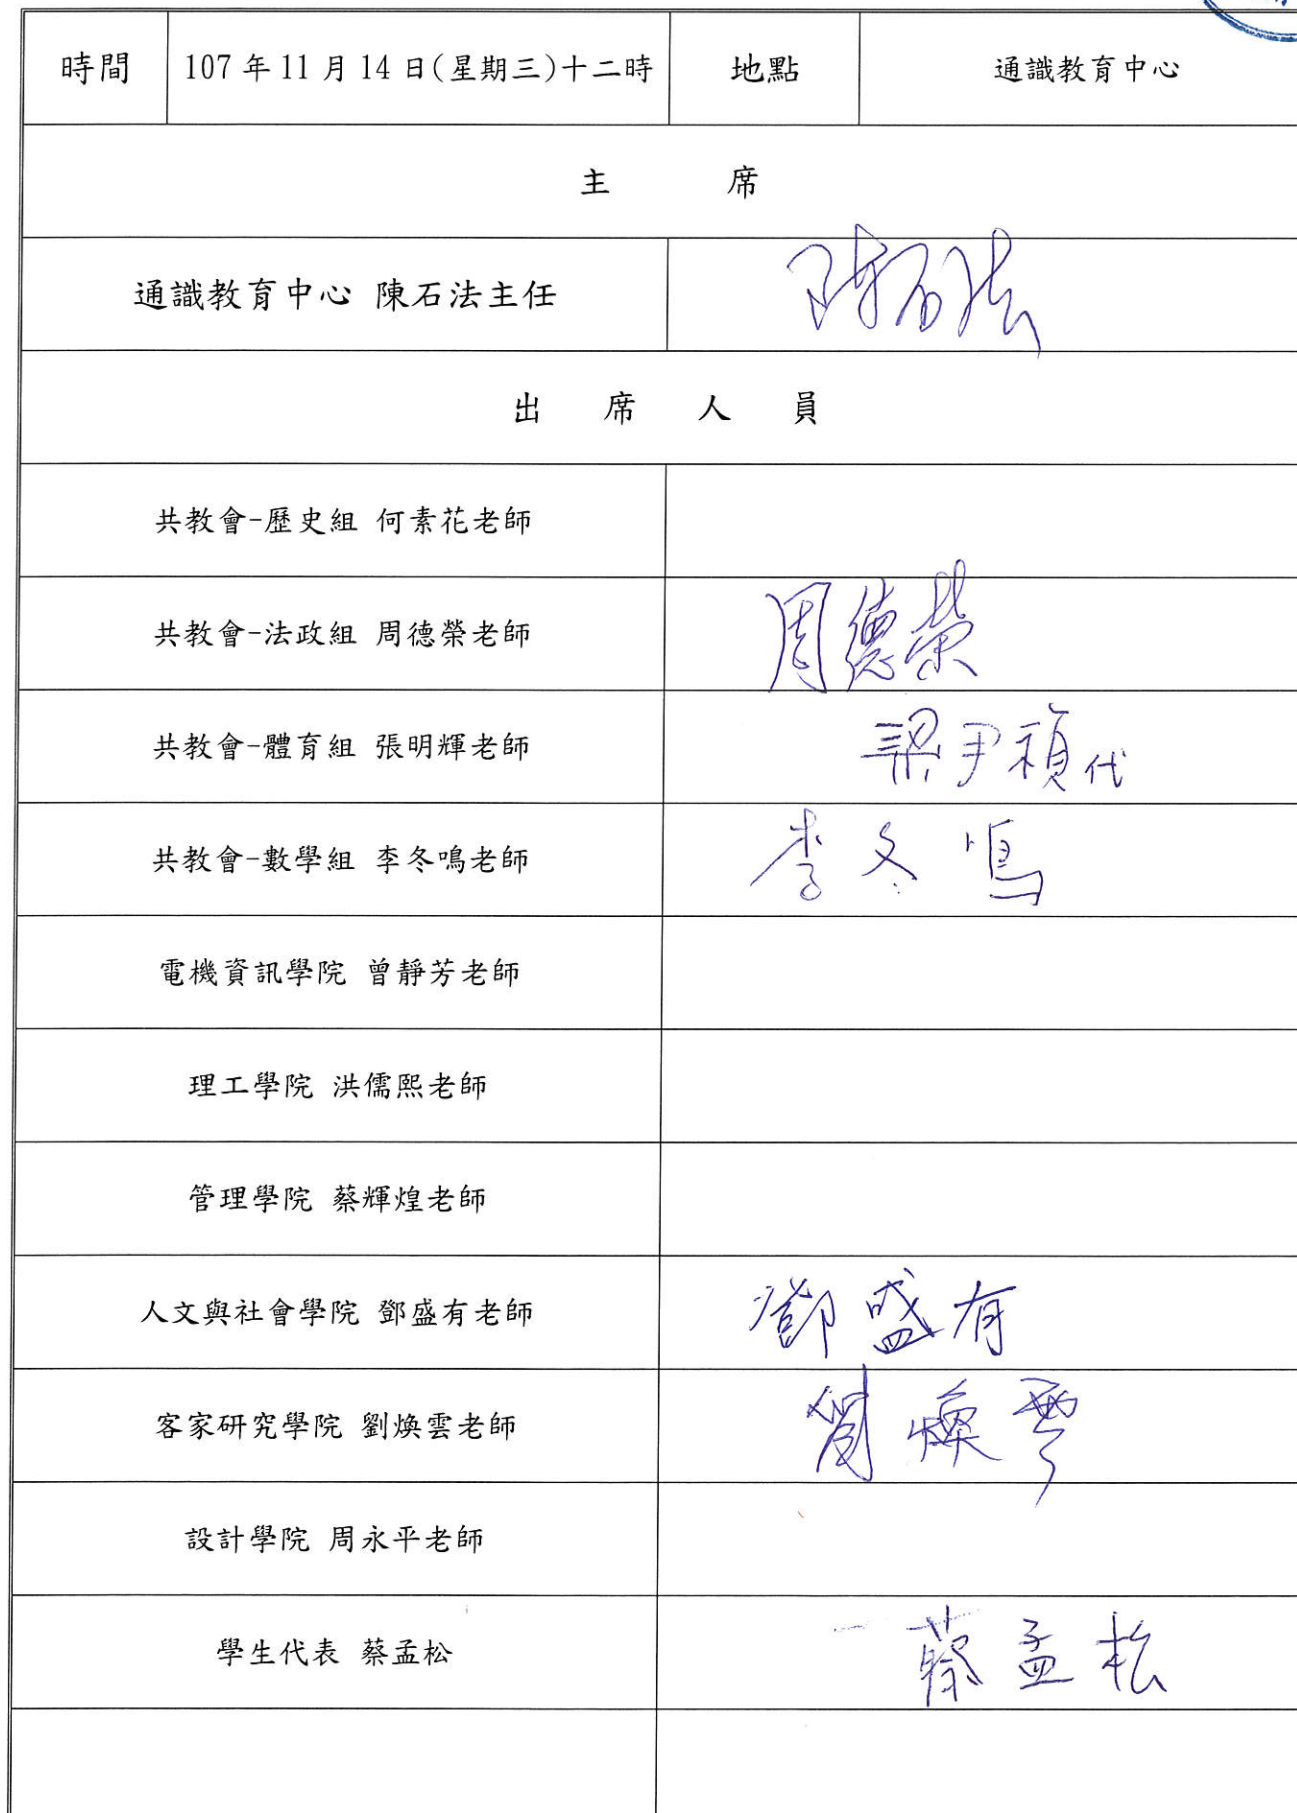 時間 107年11月14日(星期三)十二時 地點 通識教育中心
主 席
通識教育中心 陳石法主任 陳石法
出 席 人 員
共教會-歷史組 何素花老師
共教會-法政組 周德榮老師 周德榮
共教會-體育組 張明輝老師 梁尹禎代
共教會-數學組 李冬鳴老師 李冬鳴
電機資訊學院 曾靜芳老師
理工學院 洪儒熙老師
管理學院 蔡輝煌老師
人文與社會學院 鄧盛有老師 鄧盛有
客家研究學院 劉煥雲老師 劉煥雲
設計學院 周永平老師
學生代表 蔡孟松 蔡孟松